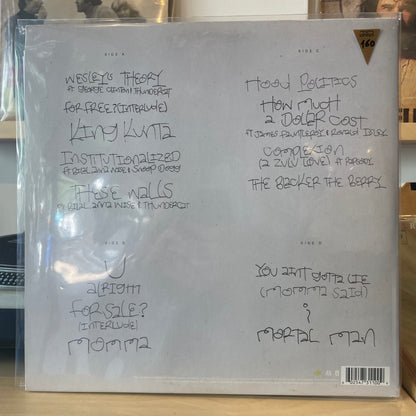 160
SIDE A
WESLEY'S THEORY
ft GEORGE CLINTON & THUNDERCAT
FOR FREE? (INTERLUDE)
KING KUNTA
INSTITUTIONALIZED
ft BILAL, ANNA WISE & SNOOP DOGG
THESE WALLS
ft BILAL, ANNA WISE & THUNDERCAT
SIDE C
HOOD POLITICS
HOW MUCH
A DOLLAR COST
ft JAMES FAUNTLEROY & RONALD ISLEY
COMPLEXION
(A ZULU LOVE) ft RAPSODY
THE BLACKER THE BERRY
SIDE B
U
ALRIGHT
FOR SALE?
(INTERLUDE)
MOMMA
SIDE D
YOU AINT GOTTA LIE
(MOMMA SAID)
i
MORTAL MAN